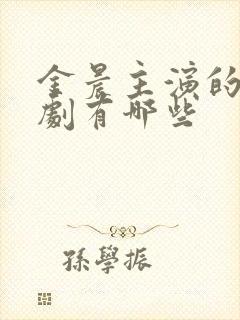 金晨主演的
劇有哪些
孫學振